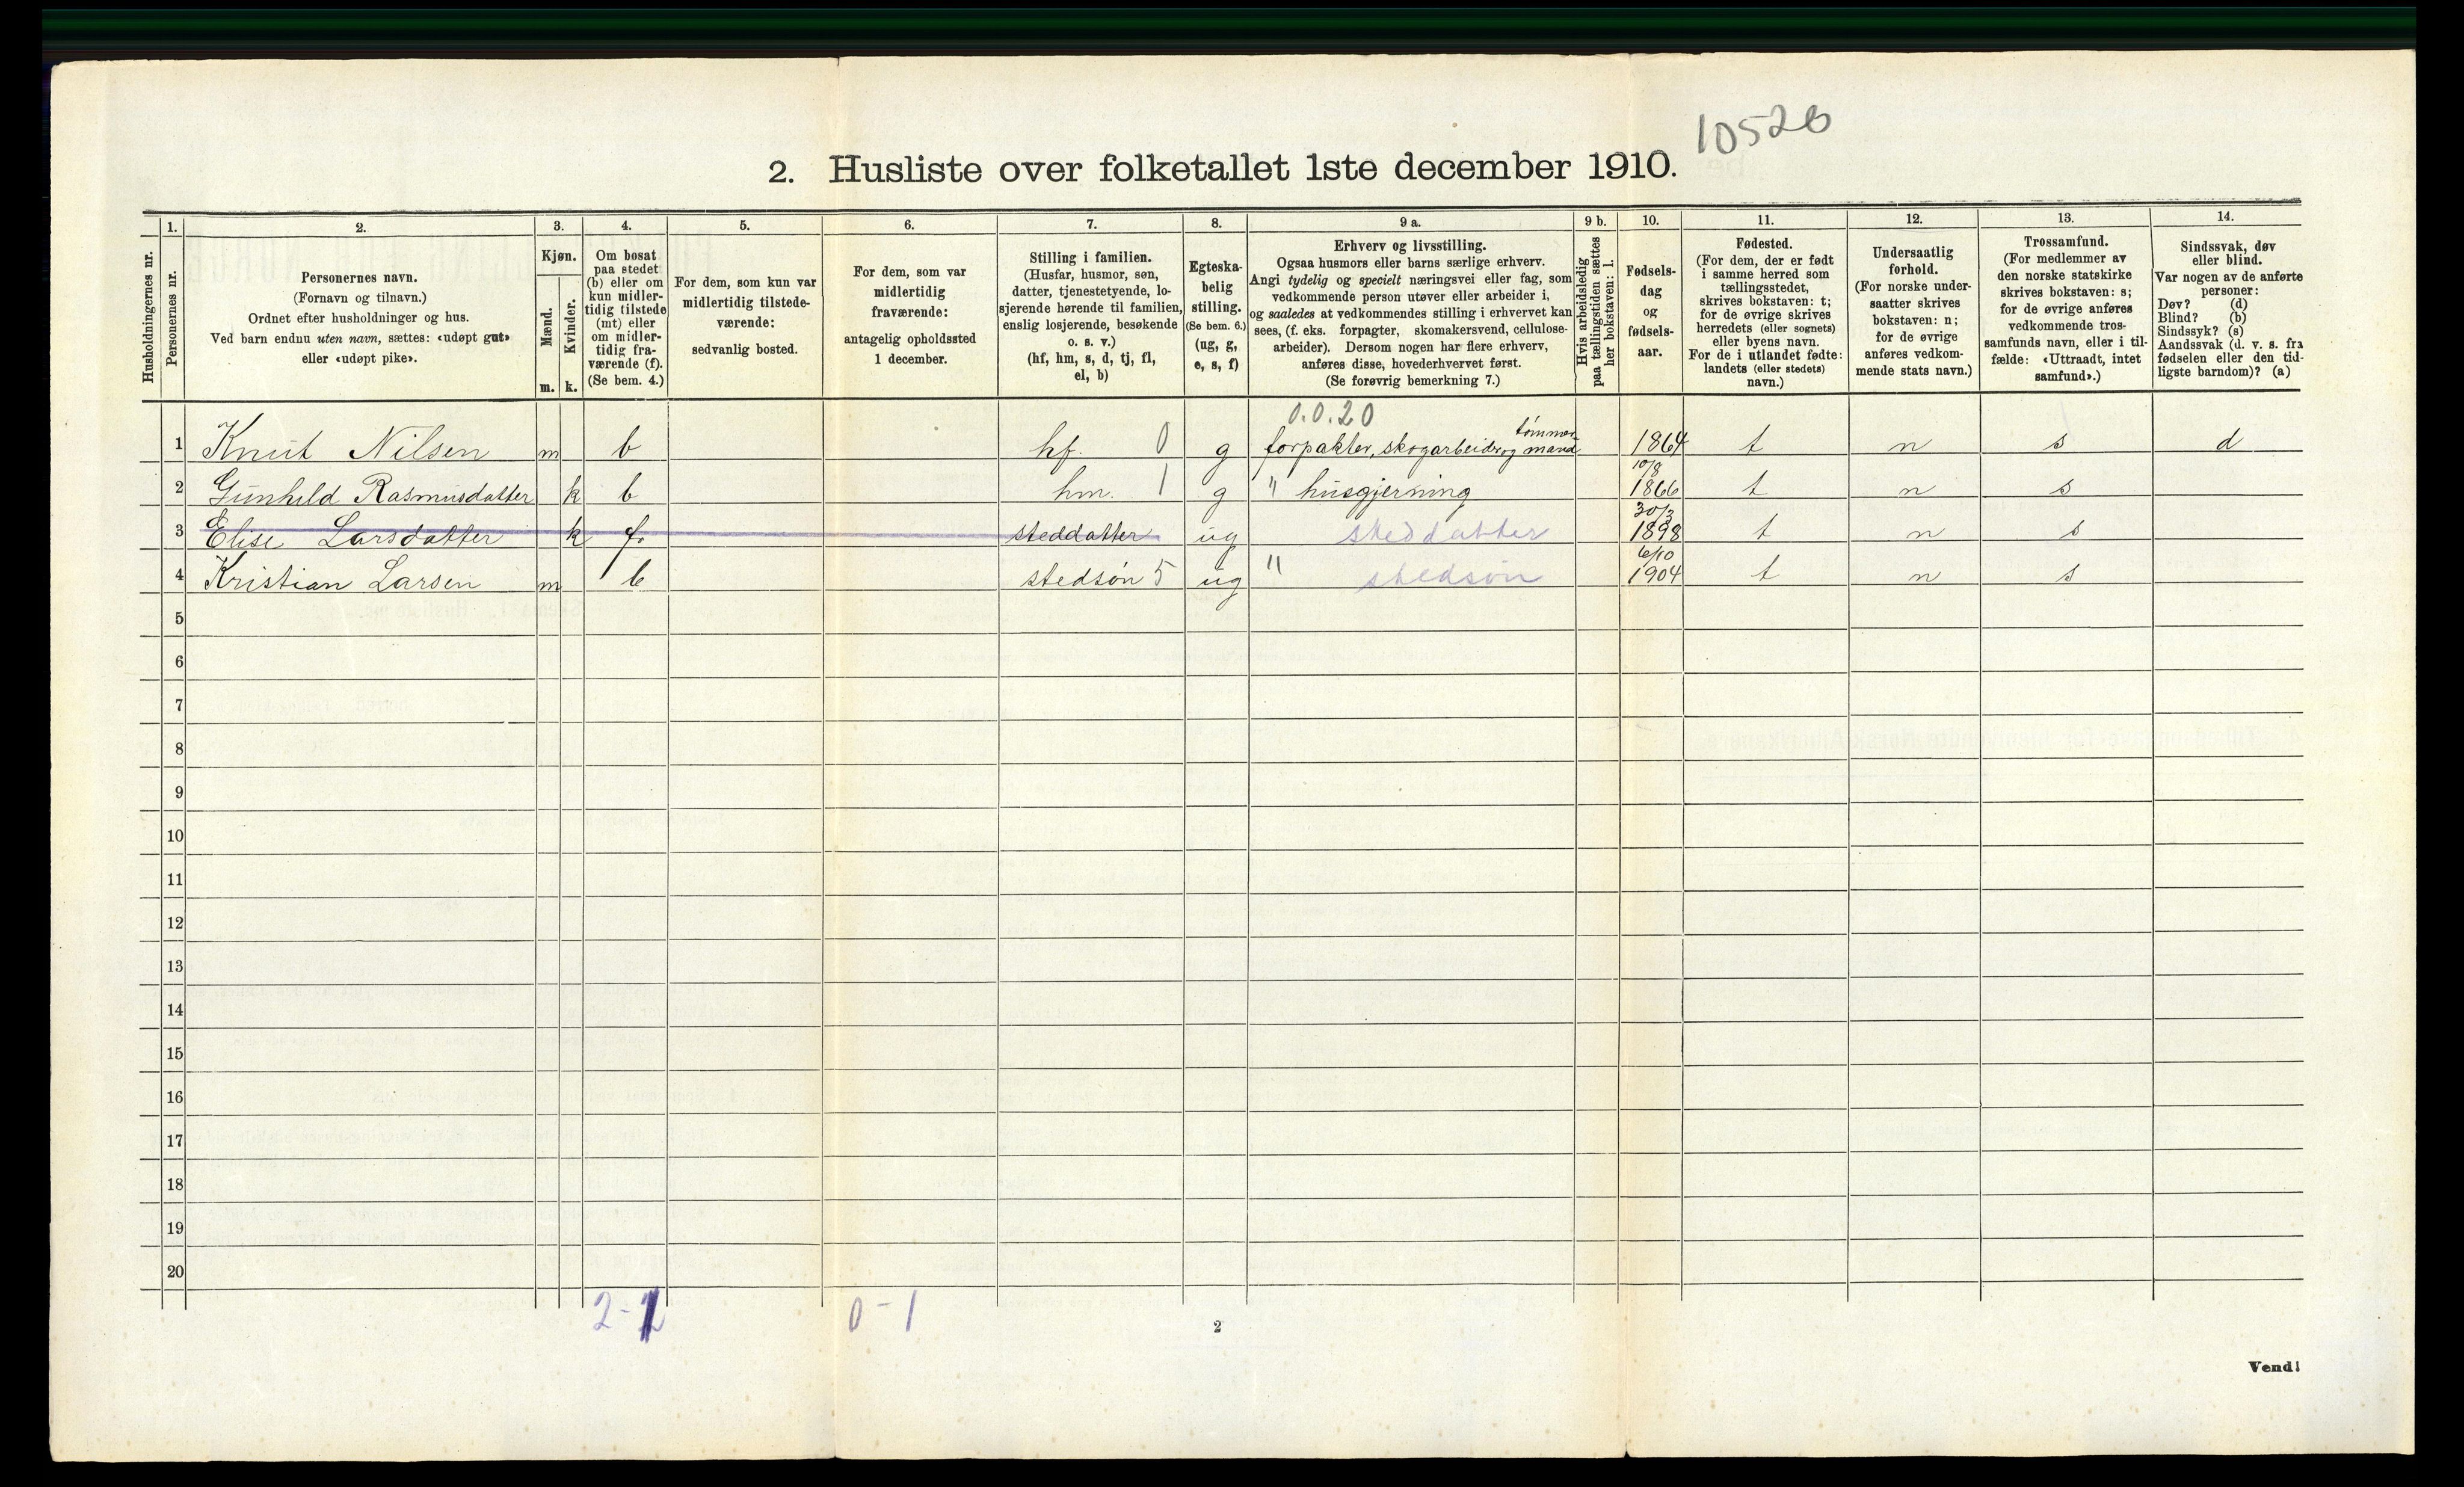 10526
2. Husliste over folketallet 1ste december 1910.
Husholdningernes nr.
1. Personernes nr.
2.
Personernes navn.
(Fornavn og tilnavn.)
Ordnet efter husholdninger og hus.
Ved barn endnu uten navn, sættes: «udøpt gut»
eller «udøpt pike».
3.
Kjøn.
Mænd.
Kvinder.
m. k.
4.
Om bosat
paa stedet
(b) eller om
kun midler-
tidig tilstede
(mt) eller
om midler-
tidig fra-
værende (f).
(Se bem. 4.)
5.
For dem, som kun var
midlertidig tilstede-
værende:
sedvanlig bosted.
6.
For dem, som var
midlertidig
fraværende:
antagelig opholdssted
1 december.
7.
Stilling i familien.
(Husfar, husmor, søn,
datter, tjenestetyende, lo-
sjerende hørende til familien,
enslig losjerende, besøkende
o. s. v.)
(hf, hm, s, d, tj, fl,
el, b)
8.
Egteska-
belig
stilling.
(Se bem. 6.)
(ug, g,
e, s, f)
9 a.
Erhverv og livsstilling.
Ogsaa husmors eller barns særlige erhverv.
Angi tydelig og specielt næringsvei eller fag, som
vedkommende person utøver eller arbeider i,
og saaledes at vedkommendes stilling i erhvervet kan
sees, (f. eks. forpagter, skomakersvend, cellulose-
arbeider). Dersom nogen har flere erhverv,
anføres disse, hovederhvervet først.
(Se forøvrig bemerkning 7.)
9 b.
Hvis arbeidsledig
paa tællingstiden sættes
her bokstaven: l.
10.
Fødsels-
dag
og
fødsels-
aar.
11.
Fødested.
(For dem, der er født
i samme herred som
tællingsstedet,
skrives bokstaven: t;
for de øvrige skrives
herredets (eller sognets)
eller byens navn.
For de i utlandet fødte:
landets (eller stedets)
navn.)
12.
Undersaatlig
forhold.
(For norske under-
saatter skrives
bokstaven: n;
for de øvrige
anføres vedkom-
mende stats navn.)
13.
Trossamfund.
(For medlemmer av
den norske statskirke
skrives bokstaven: s;
for de øvrige anføres
vedkommende tros-
samfunds navn, eller i til-
fælde: «Uttraadt, intet
samfund».)
14.
Sindssvak, døv
eller blind.
Var nogen av de anførte
personer:
Døv? (d)
Blind? (b)
Sindssyk? (s)
Aandssvak (d. v. s. fra
fødselen eller den tid-
ligste barndom)? (a)
0.0.20
1 Knut Nilsen m b hf. 0 g forpakter, skogarbeider og tømmermand 1864 t n s d
2 Gunhild Rasmusdatter k b hm. 1 g " husgjerning 10/8 1866 t n s
3 Elise Larsdatter k f. steddatter ug steddatter 30/3 1898 t n s
4 Kristian Larsen m b stedsøn 5 ug " stedsøn 6/10 1904 t n s
5
6
7
8
9
10
11
12
13
14
15
16
17
18
19
20
2-1 0-1
2
Vend!